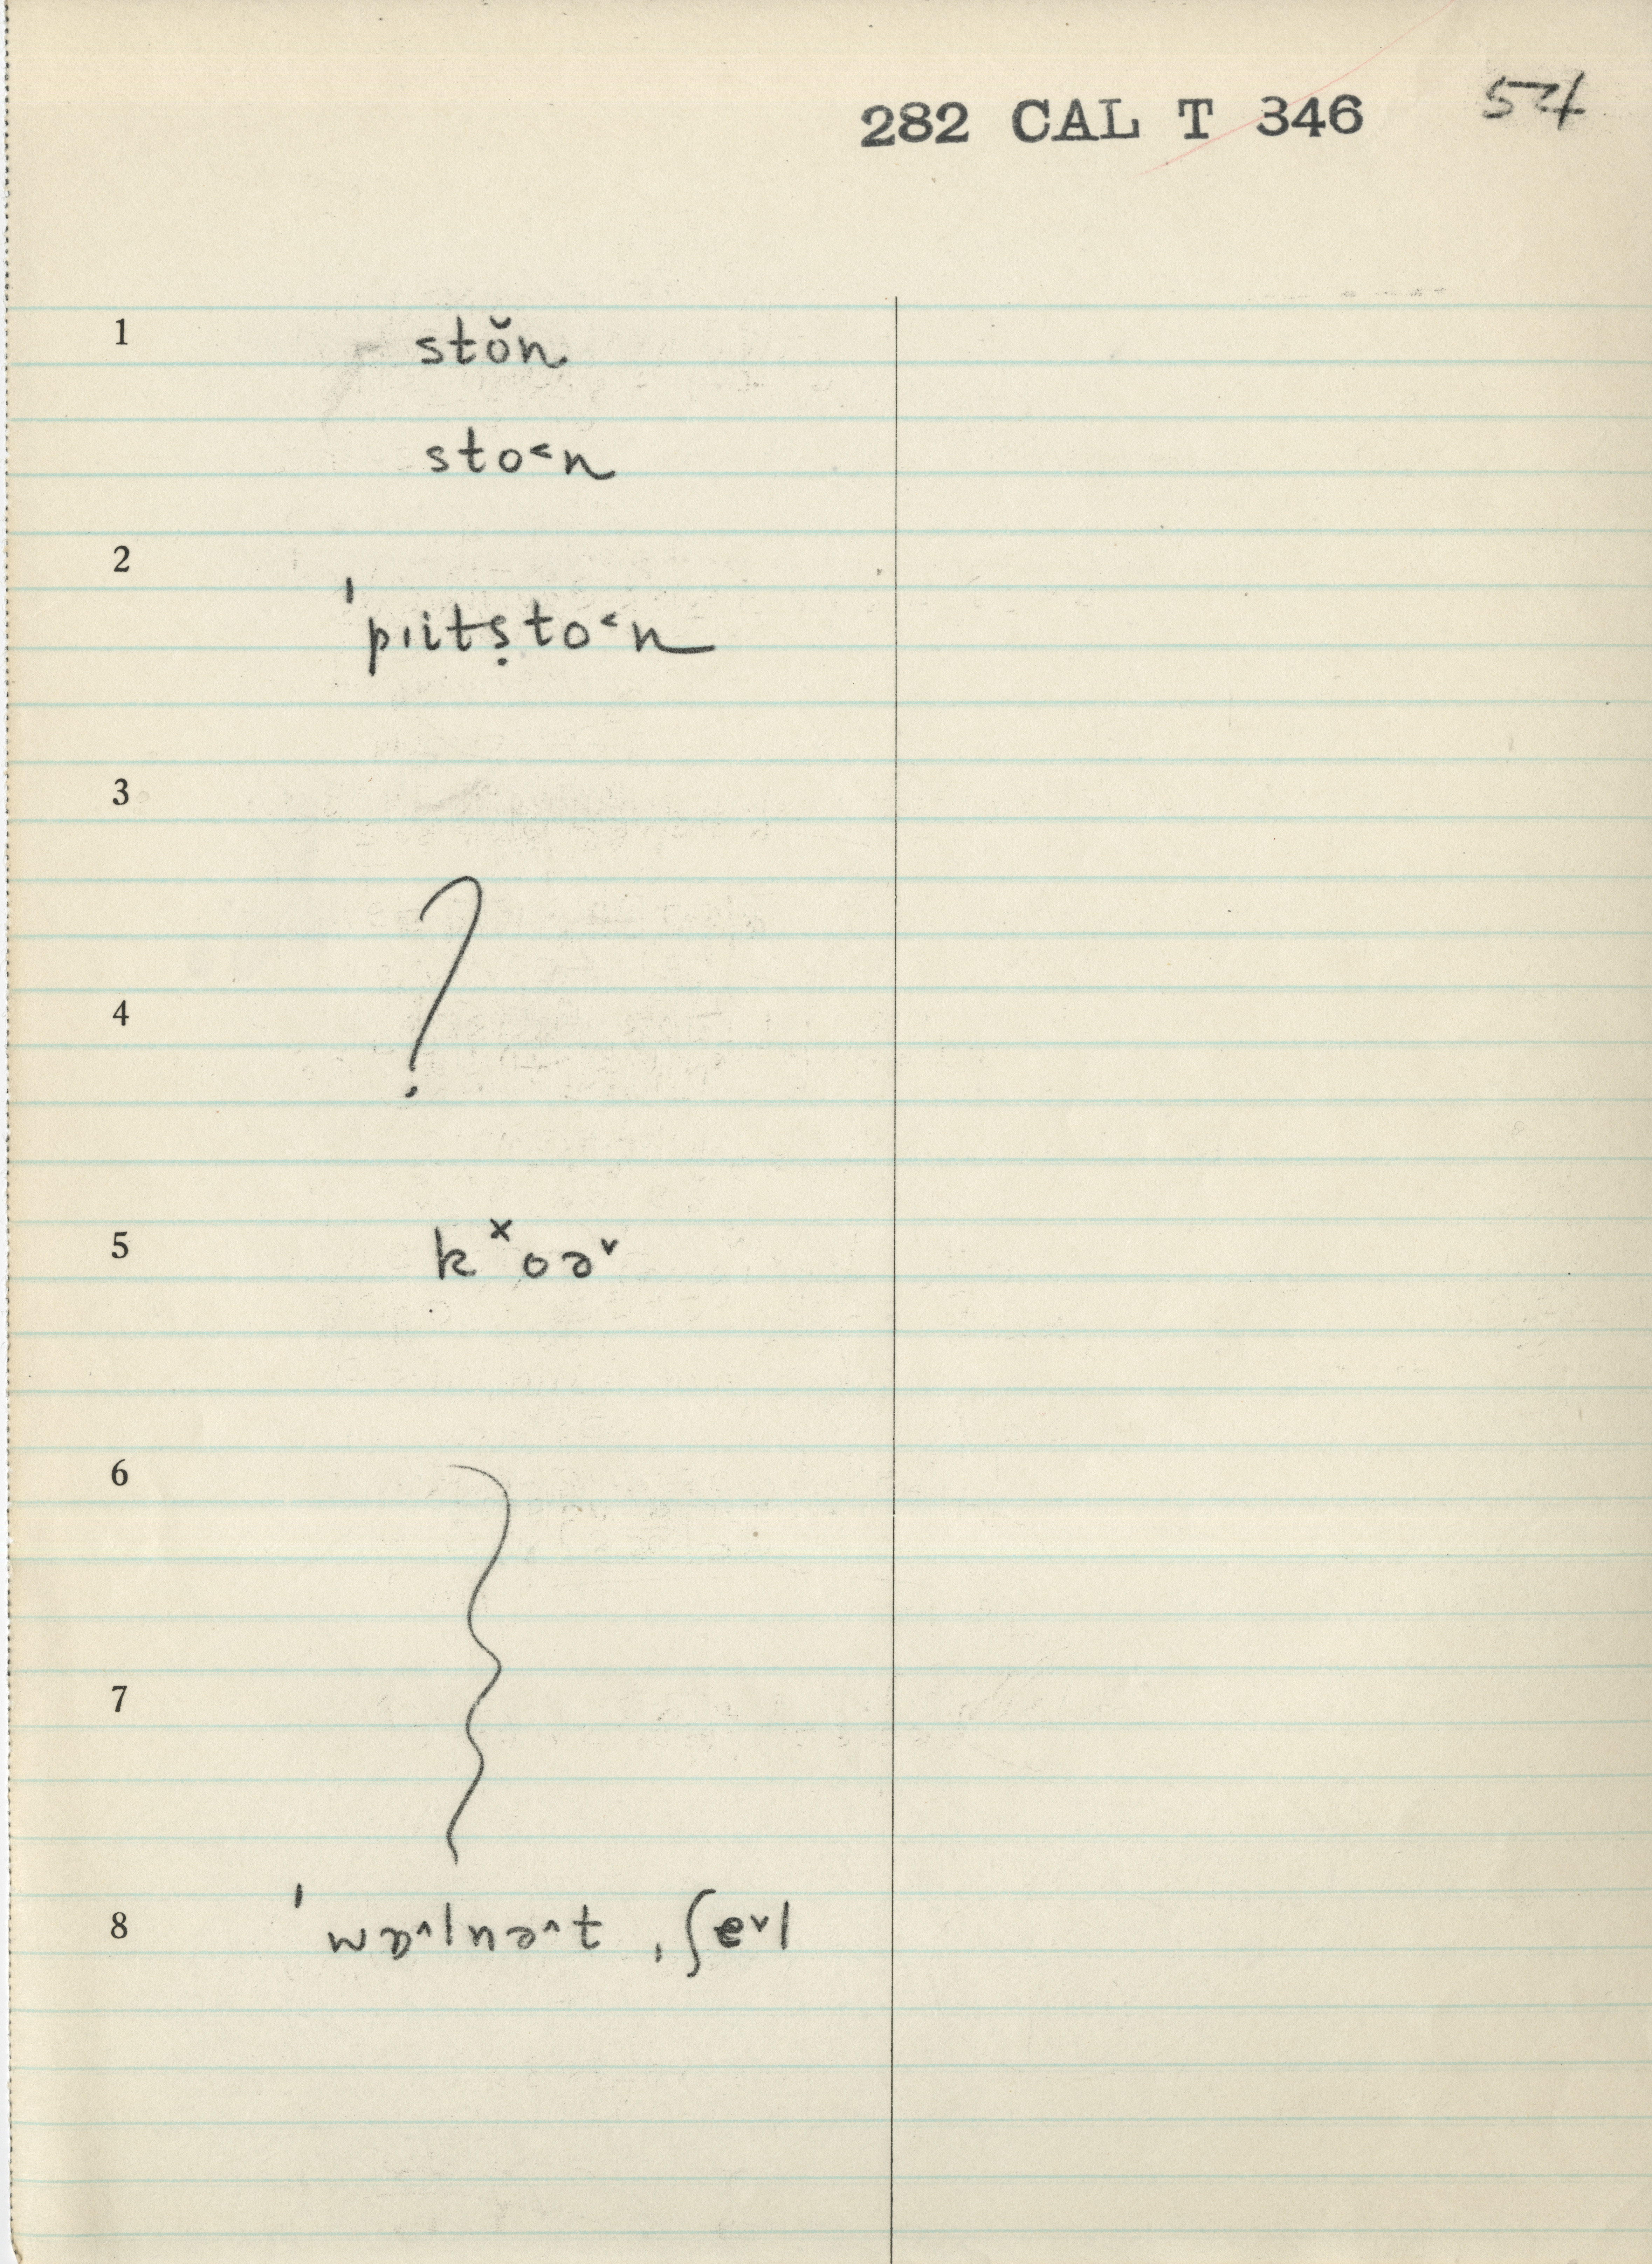 282 CAL T 346 54
1 stŏn
sto˂n
2 ˈpıitṣto˂n
3
?
4
5 kˣoə˅
6
7
8 ˈwɒ˄lnə˄t ˌʃe˅l